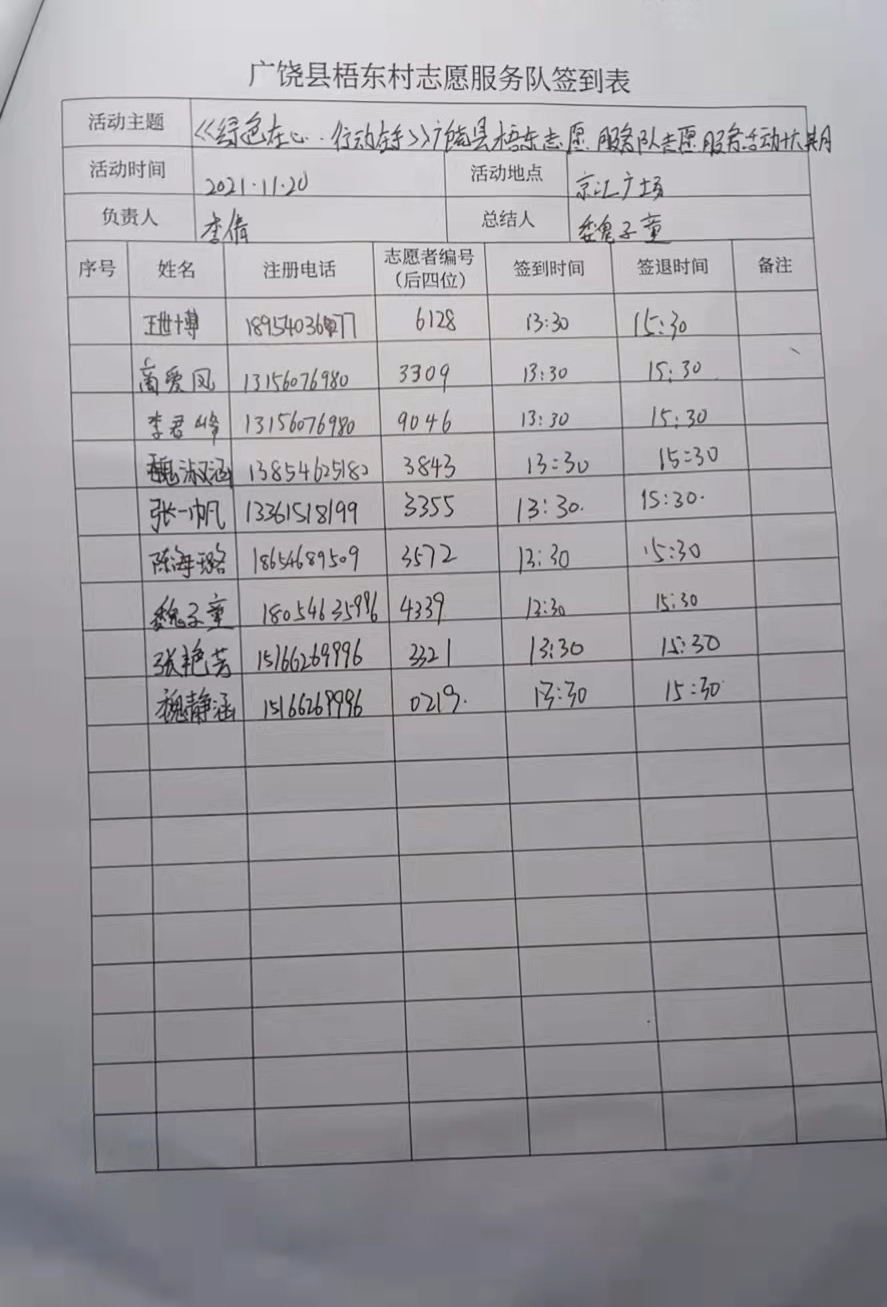 广饶县梧东村志愿服务队签到表
活动主题 《绿色在心·行动在手》广饶县梧东志愿服务队志愿服务活动十六期
活动时间 2021.11.20 活动地点 京汇广场
负责人 李倩 总结人 魏子童
序号 姓名 注册电话 志愿者编号（后四位） 签到时间 签退时间 备注
王世博 1895403677 6128 13:30 15:30
商爱凤 13156076980 3309 13:30 15:30
李君峰 13156076980 9046 13:30 15:30
魏淑涵 13854625182 3843 13:30 15:30
张一帆 13361518199 3355 13:30. 15:30.
陈海璐 18654689509 3572 13:30 15:30
魏子童 18054635996 4339 13:30 15:30
张艳芳 15166269996 3321 13:30 15:30
魏静涵 15166269996 0219. 13:30 15:30